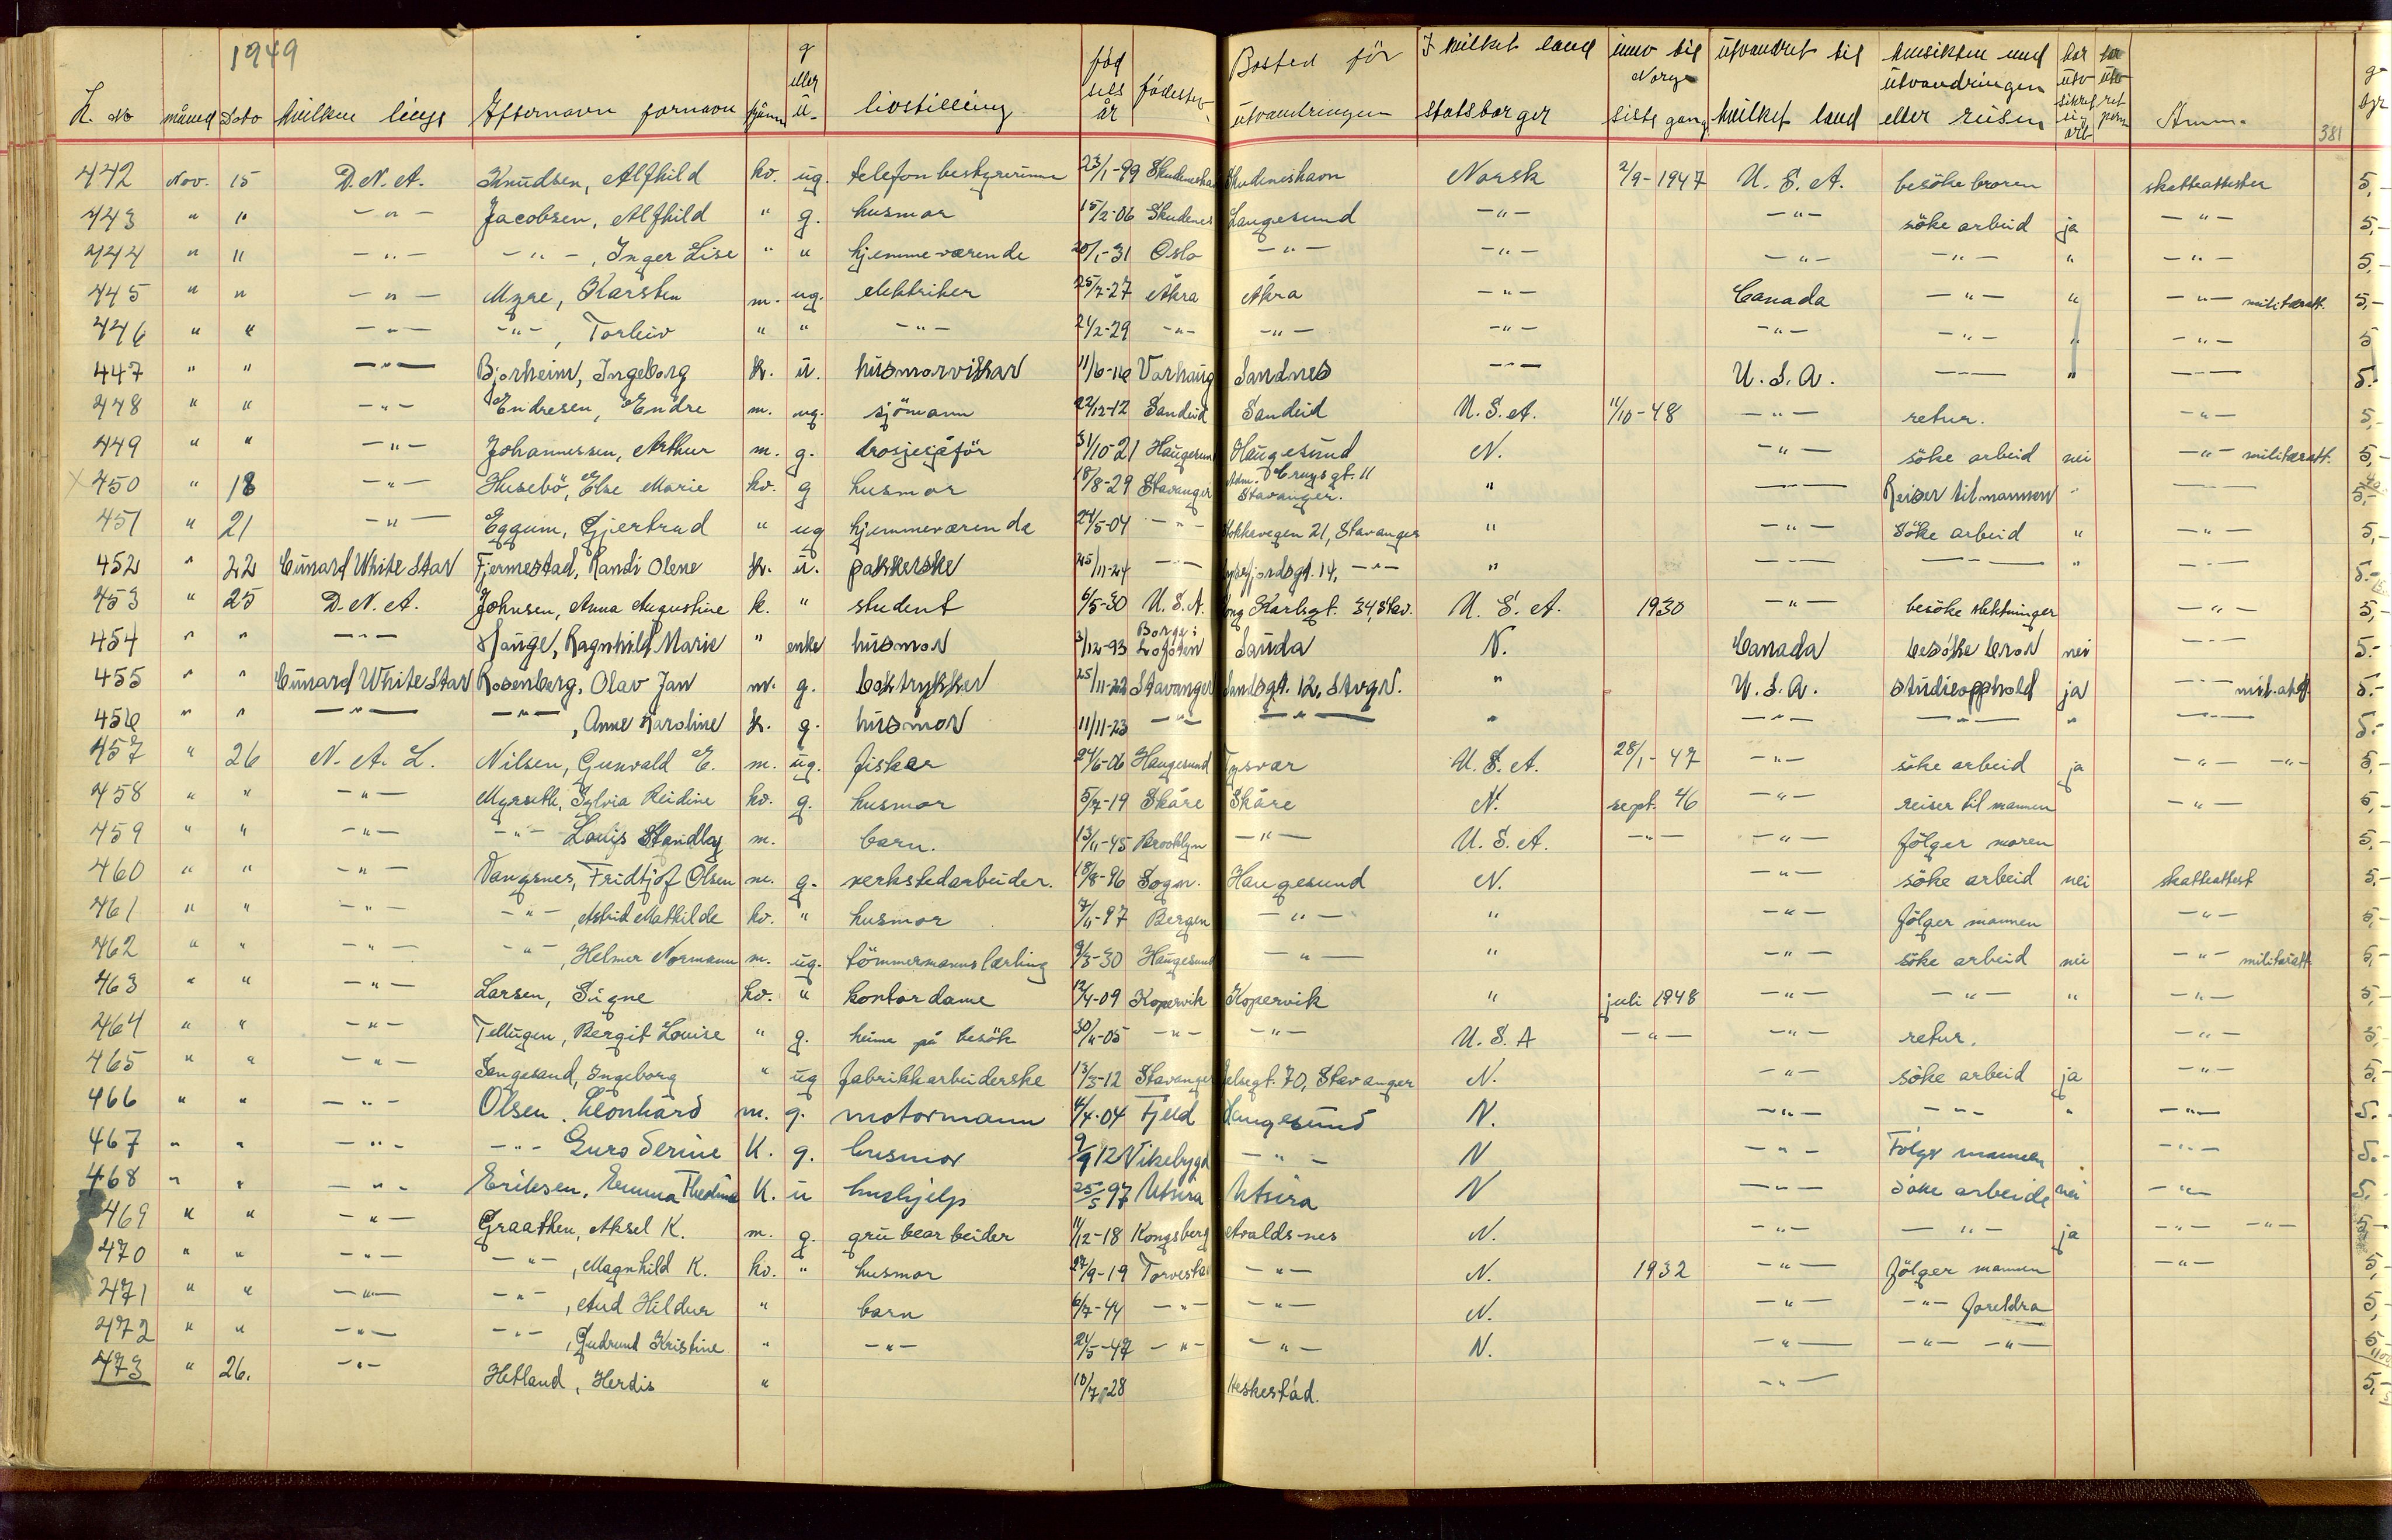 1949
K. no måned Dato hvilken linje Efternavn fornavn kjønn g eller u. livstilling fødselsår fødested Bosted før utvandringen I hvilket land statsborger innv til Norge siste gang utvandret til hvilket land hensikten med utvandringen eller reisen har utv sikret sig arb Anm. 381
442 Nov. 15 D.N.A. Knudsen, Alfhild kv. ug. telefonbestyrerinne 23/1-99 Skudeneshavn Skudeneshavn Norsk 2/9-1947 U.S.A. besöke broren skatteattester 5,-
443 " " -"- Jacobsen, Alfhild " g. husmor 15/2-06 Skudenes Langesund -"- -"- söke arbeid ja -"- 5,-
444 " " -"- -"-, Inger Lise " " hjemmeværende 20/1-31 Oslo -"- -"- -"- -"- " -"- 5,-
445 " " -"- Myre, Karsten m. ug. elektriker 25/7-27 Åkra Åkra -"- Canada -"- " -"- militæratt. 5,-
446 " " -"- -"-, Torleiv " " -"- 21/2-29 -"- -"- -"- -"- -"- " -"- 5
447 " " -"- Bjorheim, Ingeborg k. u. husmorvikar 11/6-16 Varhaug Sandnes -"- U.S.A. -"- " -"- 5.-
448 " " -"- Endresen, Endre m. ug. sjömann 22/12-12 Sandeid Sandeid U.S.A. 11/10-48 -"- retur. -"- 5,-
449 " " -"- Johannessen, Arthur m. g. drosjesjåför 31/10-21 Haugesund Haugesund N. -"- söke arbeid nei -"- militæratt. 5,-
x 450 " 18 -"- Husebö, Else Marie kv. g husmor 18/8-29 Stavanger Adm. Cruys gt. 11 Stavanger. " -"- Reiser til mannen " -"- 5,-
451 " 21 -"- Eggum, Gjertrud " ug hjemmeværende 24/5-04 -"- Stokkavegen 21, Stavanger " -"- Söke arbeid " -"- 5,-
452 " 22 Cunard White Star Fjermestad, Randi Olene k. u. pakkerske 25/11-24 -"- Lysefjordsgt. 14, -"- " -"- -"- " -"- 5.-
453 " 25 D.N.A. Johnsen, Anna Augustine k. " student 6/5-30 U.S.A. Kong Karlsgt. 34, Stav. U.S.A. 1930 -"- besöke slektninger -"- 5,-
454 " " -"- Hauge, Ragnhild Marie " enke husmor 3/12-93 Borge i Lofoten Sauda N. Canada besöke bror nei -"- 5.-
455 " " Cunard White Star Rosenberg, Olav Jan m. g. boktrykker 25/11-22 Stavanger Sandsgt. 12, Stvgr. " U.S.A. studieopphold ja -"- mil. att. 5.-
456 " " -"- -"-, Anne Karoline k. g. husmor 11/11-23 -"- -"- " -"- -"- " -"- 5.-
457 " 26 N.A.L. Nilsen, Gunvald E. m. ug. fisker 24/6-06 Haugesund Tysvær U.S.A. 28/1-47 -"- söke arbeid ja -"- -"- 5,-
458 " " -"- Myrseth, Sylvia Reidine kv. g. husmor 5/7-19 Skåre Skåre N. sept. 46 -"- reiser til mannen -"- 5,-
459 " " -"- -"- Louis Standley m. barn. 13/11-45 Brooklyn -"- U.S.A. -"- -"- fölger moren 5,-
460 " " -"- Vangsnes, Fridtjof Olsen m. g. verkstedarbeider. 18/8-96 Sogn. Haugesund N. -"- söke arbeid nei skatteattest 5,-
461 " " -"- -"-, Astrid Mathilde kv. " husmor 7/11-97 Bergen -"- " -"- fölger mannen -"- 5,-
462 " " -"- -"-, Helmer Normann m. ug. tömmermannslærling 9/3-30 Haugesund -"- " -"- söke arbeid nei -"- militæratt 5,-
463 " " -"- Larsen, Signe kv. " kontordame 12/4-09 Kopervik Kopervik " juli 1948 -"- -"- " -"- 5,-
464 " " -"- Tellugen, Bergit Louise " g. heime på besök 30/11-05 -"- -"- U.S.A -"- -"- retur. -"- 5,-
465 " " -"- Sangesand, Ingeborg " ug fabrikkarbeiderske 13/3-12 Stavanger Jelsegt. 70, Stavanger N. -"- söke arbeid ja -"- 5,-
466 " " -"- Olsen. Leonhard m. g. motormann 6/4-04 Fjeld Haugesund N. -"- -"- " -"- 5.-
467 " " -"- -"- Guro Serine K. g. husmor 9/9 12 Vikebygd -"- N -"- Fölger mannen -"- 5.-
468 " " -"- Eriksen, Emma Thedine K. u hushjelp 25/5 97 Utsira Utsira N -"- söke arbeide nei -"- 5,-
469 " " -"- Graathen, Aksel K. m. g. grubearbeider 11/12-18 Kongsberg Avaldsnes N. -"- -"- ja -"- -"- 5,-
470 " " -"- -"-, Magnhild K. kv. " husmor 27/9-19 Torvestad -"- N. 1932 -"- fölger mannen -"- 5,-
471 " " -"- -"-, Aud Hildur " barn 6/7-44 -"- -"- N. -"- -"- foreldra 5,-
472 " " -"- -"-, Gudrund Kristine " -"- 24/5-47 -"- -"- N. -"- -"- -"- 5,-
473 " 26. -"- Hetland, Herdis " 10/7-28 Heskestad. -"- 5,-